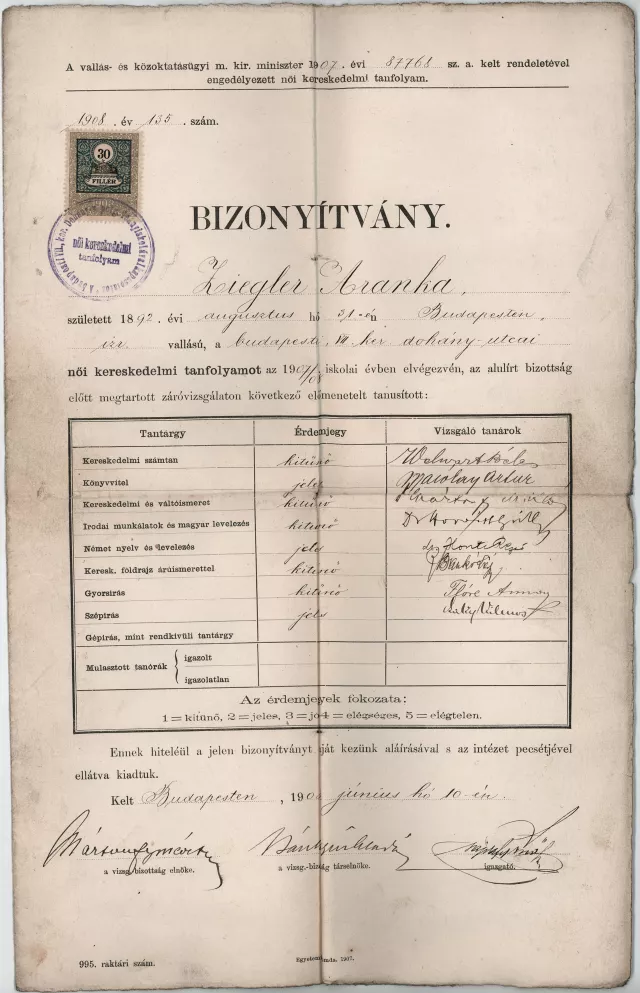 A vallás- és közoktatásügyi m. kir. miniszter 1907. évi 87768 sz. a. kelt rendeletével
engedélyezett női kereskedelmi tanfolyam.
1908 . év 135 . szám.
30
FILLÉR
női kereskedelmi
tanfolyam
BIZONYÍTVÁNY.
Ziegler Aranka,
született 1892. évi augusztus hó 31-én Budapesten
izr. vallású, a budapesti VII. ker dohány-utcai
női kereskedelmi tanfolyamot az 1907/08 iskolai évben elvégezvén, az alulírt bizottság
előtt megtartott záróvizsgálaton következő előmenetelt tanusított:
Tantárgy Érdemjegy Vizsgáló tanárok
Kereskedelmi számtan kitünő
Könyvvitel jeles Artur
Kereskedelmi és váltóismeret kitünő
Irodai munkálatok és magyar levelezés kitünő Dr
Német nyelv és levelezés jeles
Keresk. földrajz áruismerettel kitünő
Gyorsírás kitünő
Szépírás jeles Vilmos
Gépírás, mint rendkívüli tantárgy
Mulasztott tanórák { igazolt
igazolatlan
Az érdemjegyek fokozata:
1 = kitünő, 2 = jeles, 3 = jó 4 = elégséges, 5 = elégtelen.
Ennek hiteléül a jelen bizonyítványt saját kezünk aláírásával s az intézet pecsétjével
ellátva kiadtuk.
Kelt Budapesten , 190 június hó 10-én.
a vizsg. bizottság elnöke. a vizsg.-bizság társelnöke. igazgató.
995. raktári szám. 1907.